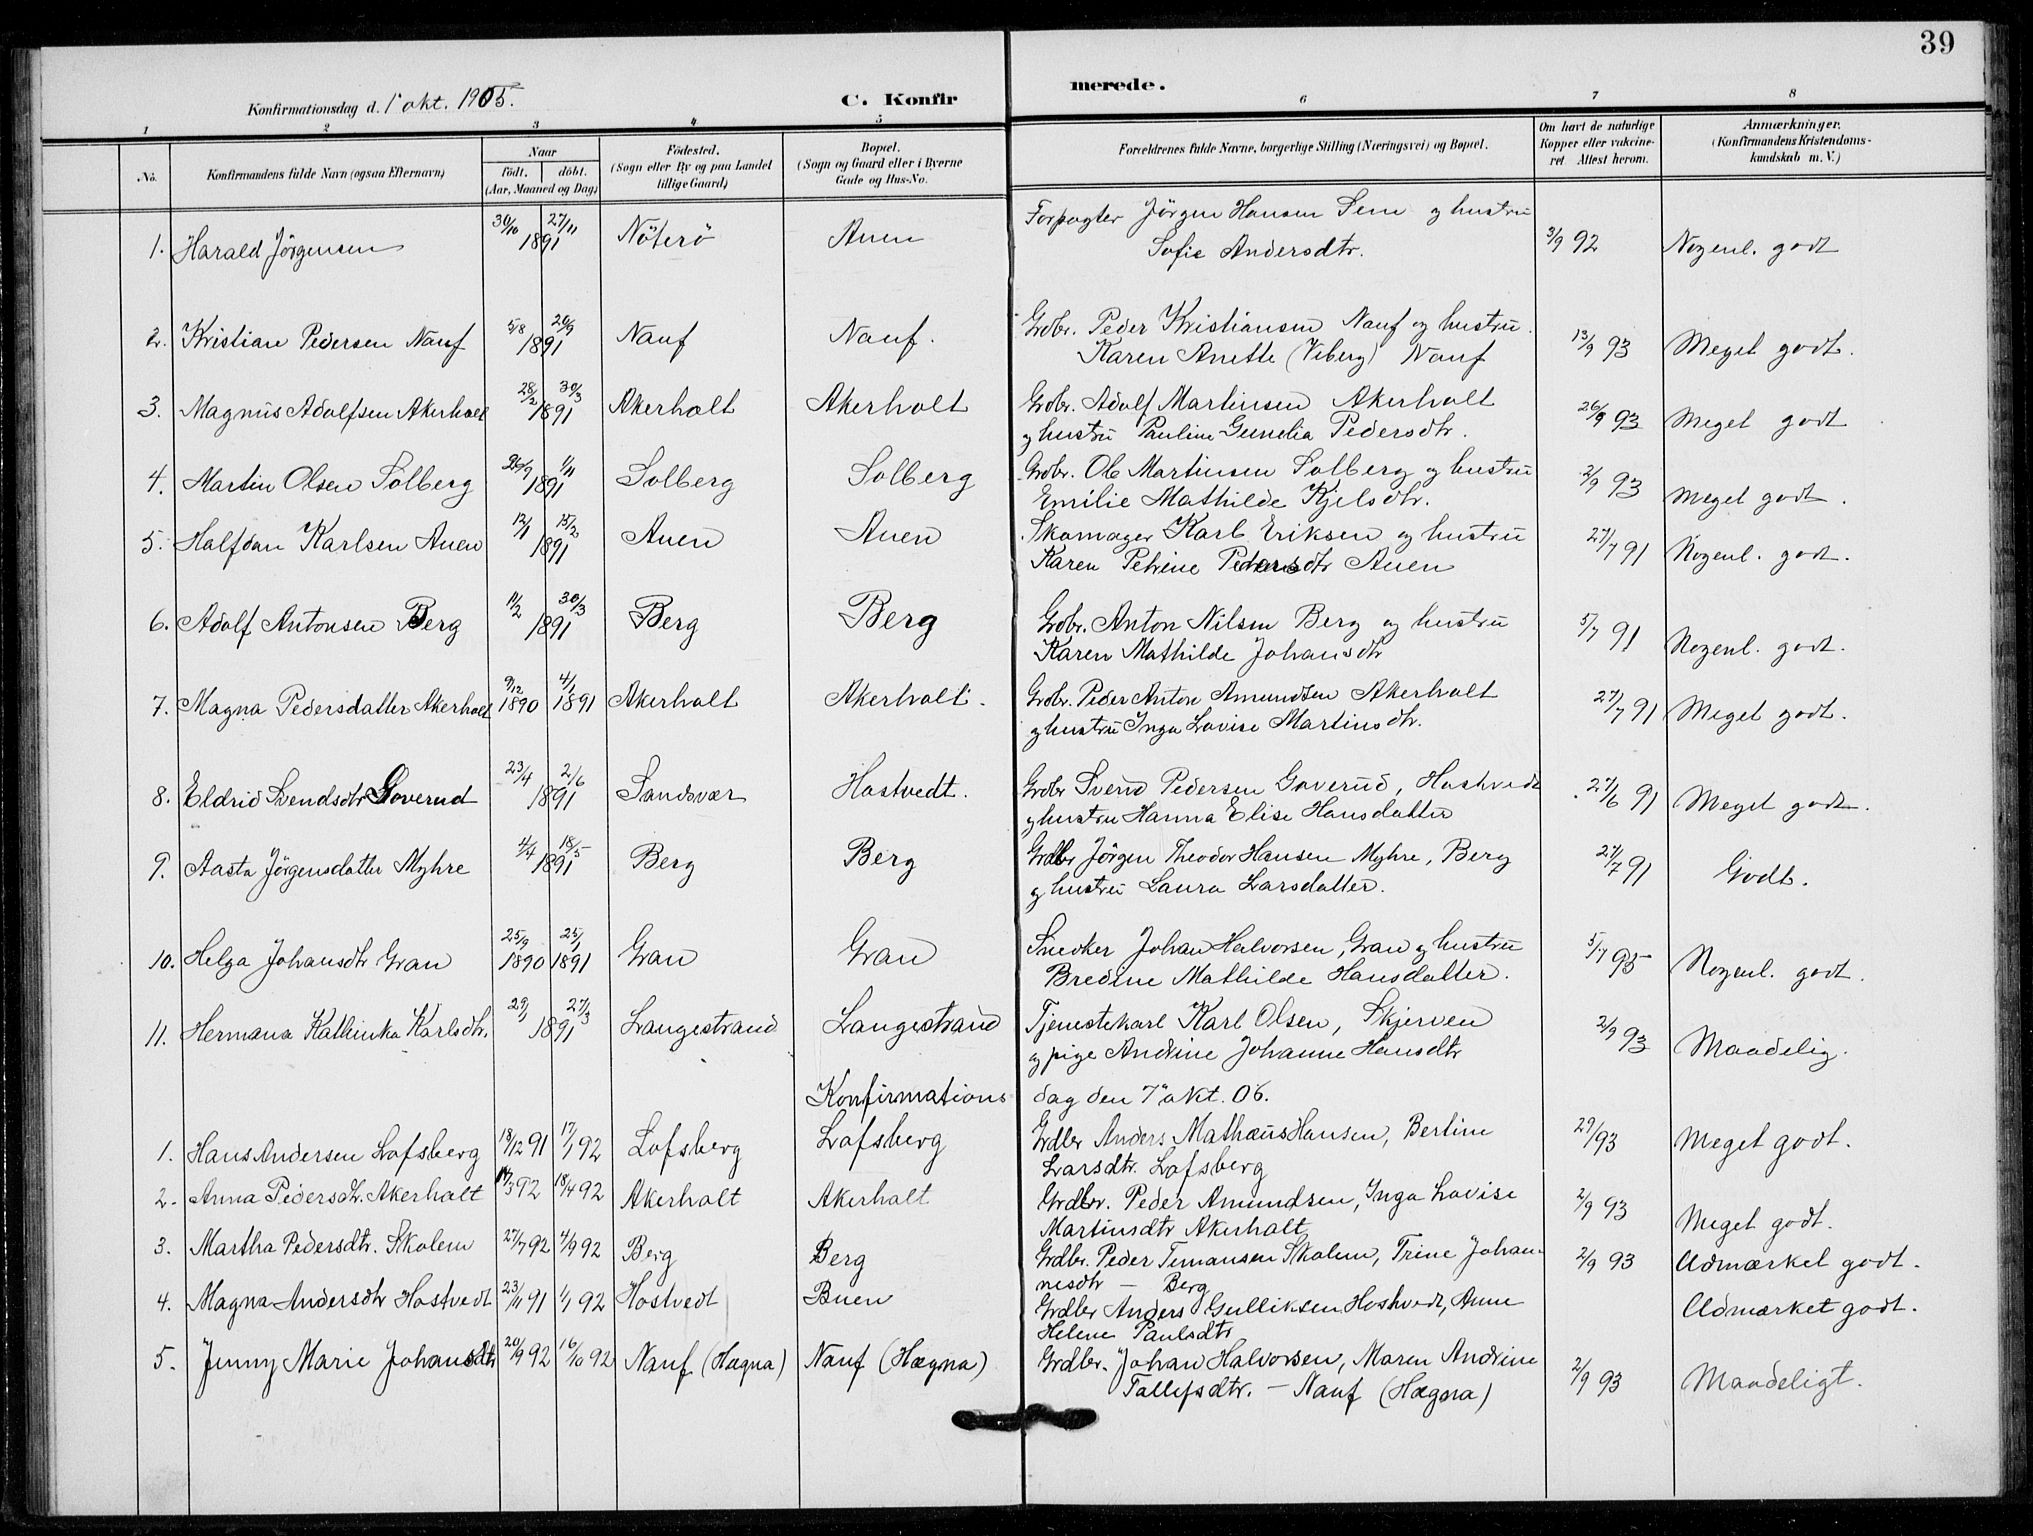 39
Konfirmationsdag d. 1' okt. 1905.
C. Konfirmerede.
1 2 3 4 5 6 7 8
No. Konfirmandens fulde Navn (ogsaa Efternavn) Naar født. døbt. (Aar, Maaned og Dag) Fødested. (Sogn eller By og paa Landet tillige Gaard) Bopæl. (Sogn og Gaard eller i Byerne Gade og Hus-No. Forældrenes fulde Navne, borgerlige Stilling (Næringsvei) og Bopæl. Om havt de naturlige Kopper eller vakcineret Attest herom. Anmærkninger. (Konfirmandens Kristendomskundskab m. V.)
1. Harald Jörgensen 30/10 27/11 1891 Nöterö Auen Forpagter Jörgen Hansen Sem og hustru
Sofie Andersdtr. 3/9 92 Nogenl. godt
2. Kristian Pedersen Nauf 5/8 20/9 1891 Nauf Nauf. Grdbr. Peder Kristiansen Nauf og hustru
Karen Anette (Viberg) Nauf 13/9 93 Meget godt.
3. Magnus Adolfsen Akerholt 28/2 30/3 1891 Akerholt Akerholt Grdbr. Adolf Martinsen Akerholt
og hustru Pauline Gunelia Pedersdtr. 26/9 93 Meget godt
4. Martin Olsen Solberg 26/9 1/11 1891 Solberg Solberg Grdbr. Ole Martinsen Solberg og hustru
Emilie Mathilde Kjelsdtr. 2/9 93 Meget godt.
5. Halfdan Karlsen Auen 12/1 15/2 1891 Auen Auen Skomager Karl Eriksen og hustru
Karen Petrine Pedersdtr Auen 27/7 91 Nogenl. godt.
6. Adolf Antonsen Berg 11/2 30/3 1891 Berg Berg Grdbr. Anton Nilsen Berg og hustru
Karen Mathilde Johansdtr 5/7 91 Nogenl. godt.
7. Magna Pedersdatter Akerholt 9/12 1890 4/1 1891 Akerholt Akerholt. Grdbr. Peder Anton Amundsen Akerholt
og hustru Inga Lovise Martinsdtr. 27/7 91 Meget godt.
8. Eldrid Svendsdtr Goverud 23/4 2/6 1891 Sandsvær Hostvedt. Grdbr Svend Pedersen Goverud, Hostvedt
og hustru Hanna Elise Hansdatter 27/6 91 Meget godt.
9. Aasta Jörgensdatter Myhre 4/4 18/5 1891 Berg Berg Grdbr Jörgen Theodor Hansen Myhre, Berg
og hustru Laura Larsdatter. 27/7 91 Godt.
10. Helga Johansdtr Gran 25/9 1890 25/1 1891 Gran Gran Snedker Johan Halvorsen, Gran og hustru
Bredine Mathilde Hansdatter. 5/7 95 Nogenl. godt.
11. Hermana Kathinka Karlsdtr. 29/1 27/3 1891 Langestrand Langestrand Tjenestekarl Karl Olsen, Skjerven
og pige Andrine Johanne Hansdtr 2/9 93 Maadelig.
Konfirmationsdag den 7' okt. 06.
1. Hans Andersen Lofsberg 18/12 91 17/1 92 Lofsberg Lofsberg Grdbr Anders Mathæus Hansen, Bertine
Larsdtr. Lofsberg 29/93 Meget godt.
2. Anna Pedersdtr. Akerholt 14/3 92 18/4 92 Akerholt Akerholt Grdbr. Peder Amundsen, Inga Lovise
Martinsdtr Akerholt 2/9 93 Meget godt.
3. Martha Pedersdtr. Skolem 27/7 92 4/9 92 Berg Berg Grdbr. Peder Temansen Skolem, Trine Johannesdtr
— Berg 2/9 93 Udmærket godt.
4. Magna Andersdtr Hostvedt 23/11 91 1/1 92 Hostvedt Buen Grdbr Anders Gulliksen Hostvedt, Anne
Helene Paulsdtr Udmærket godt.
5. Jenny Marie Johansdtr 20/9 92 16/10 92 Nauf (Hægna) Nauf (Hægna) Grdbr. Johan Halvorsen, Maren Andrine
Tollefsdtr. — Nauf (Hægna) 2/9 93 Maadeligt.